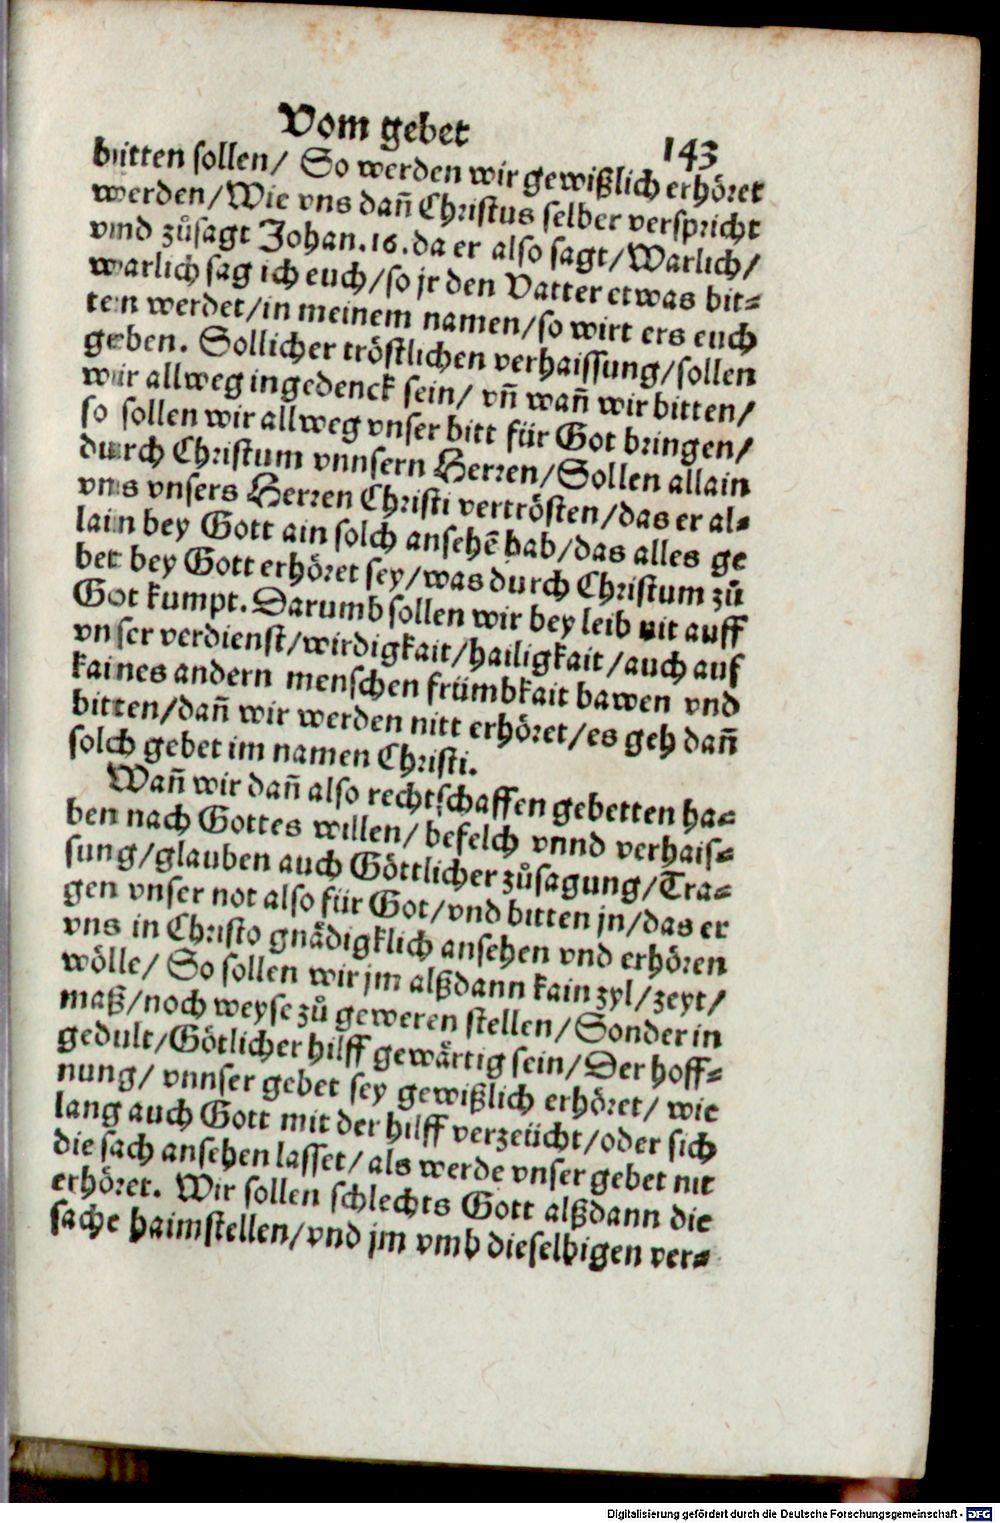 Vom gebet
143
bitten sollen/ So werden wir gewißlich erhöret
werden/Wie vns dañ Christus selber verspricht
vnd zůsagt Johan.16.da er also sagt/Warlich/
warlich sag ich euch/so jr den Vatter etwas bit⸗
ten werdet/in meinem namen/so wirt ers euch
geben. Sollicher tröstlichen verhaissung/sollen
wir allweg ingedenck sein/ vñ wañ wir bitten/
so sollen wir allweg vnser bitt für Got bringen/
durch Christum vnnsern Herren/Sollen allain
vns vnsers Herren Christi vertrösten/das er al⸗
lain bey Gott ain solch ansehē hab/das alles ge
bet bey Gott erhöret sey/was durch Christum zů
Got kumpt.Darumb sollen wir bey leib nit auff
vnser verdienst/wirdigkait/hailigkait/auch auf
kaines andern menschen frümbkait bawen vnd
bitten/dañ wir werden nitt erhöret/es geh dañ
solch gebet im namen Christi.
Wañ wir dañ also rechtschaffen gebetten ha⸗
ben nach Gottes willen/ befelch vnnd verhais⸗
sung/glauben auch Göttlicher zůsagung/Tra⸗
gen vnser not also für Got/vnd bitten jn/das er
vns in Christo gnådigklich ansehen vnd erhören
wölle/ So sollen wir jm alßdann kain zyl/zeyt/
maß/noch weyse zů geweren stellen/Sonder in
gedult/Götlicher hilff gewårtig sein/Der hoff⸗
nung/ vnnser gebet sey gewißlich erhöret/ wie
lang auch Gott mit der hilff verzeücht/oder sich
die sach ansehen lasset/als werde vnser gebet nit
erhöret. Wir sollen schlechts Gott alßdann die
sache haimstellen/vnd jm vmb dieselbigen ver⸗
Digitalisierung gefördert durch die Deutsche Forschungsgemeinschaft - DFG